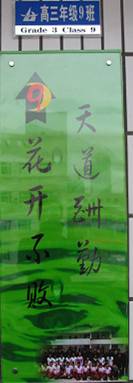 高三年级9班
Grade 3 Class 9
9
天道酬勤
花开不败